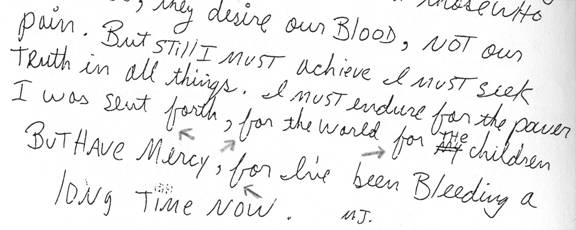 they desire our BLOOD, NOT our
pain. But still I MUST achieve I MUST seek
TRuth in all things. I MUST endure for the power
I was sent forth, for the world for THE children
BUT HAVE Mercy, for I've been Bleeding a
long Time NOW. MJ.